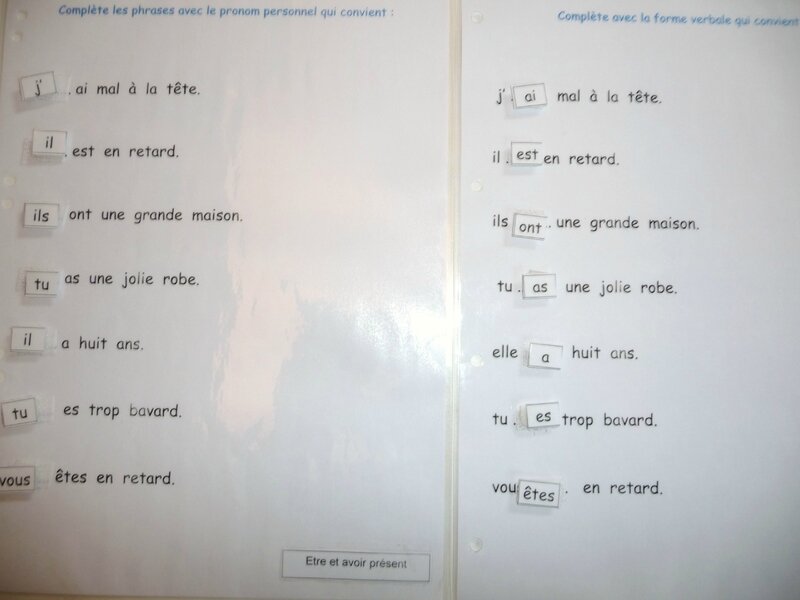 Complète les phrases avec le pronom personnel qui convient :
j' . ai mal à la tête.
il . est en retard.
ils ont une grande maison.
tu as une jolie robe.
il a huit ans.
tu es trop bavard.
vous êtes en retard.
Etre et avoir présent
Complète avec la forme verbale qui convient
j' ai mal à la tête.
il . est en retard.
ils ont .. une grande maison.
tu . as une jolie robe.
elle a huit ans.
tu . es trop bavard.
vou êtes . en retard.